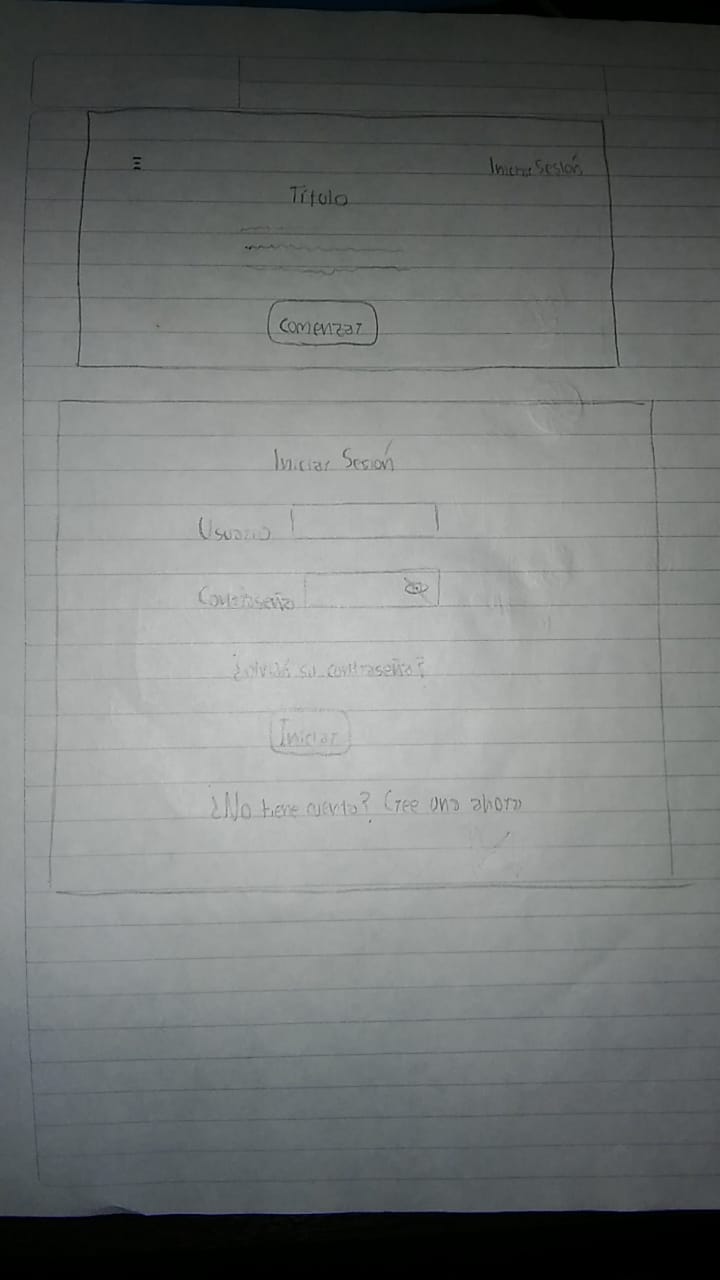 Iniciar Sesión
Título
Comenzar
Iniciar Sesión
Usuario
Contraseña
¿olvidó su contraseña?
Iniciar
¿No tiene cuenta? Cree una ahora